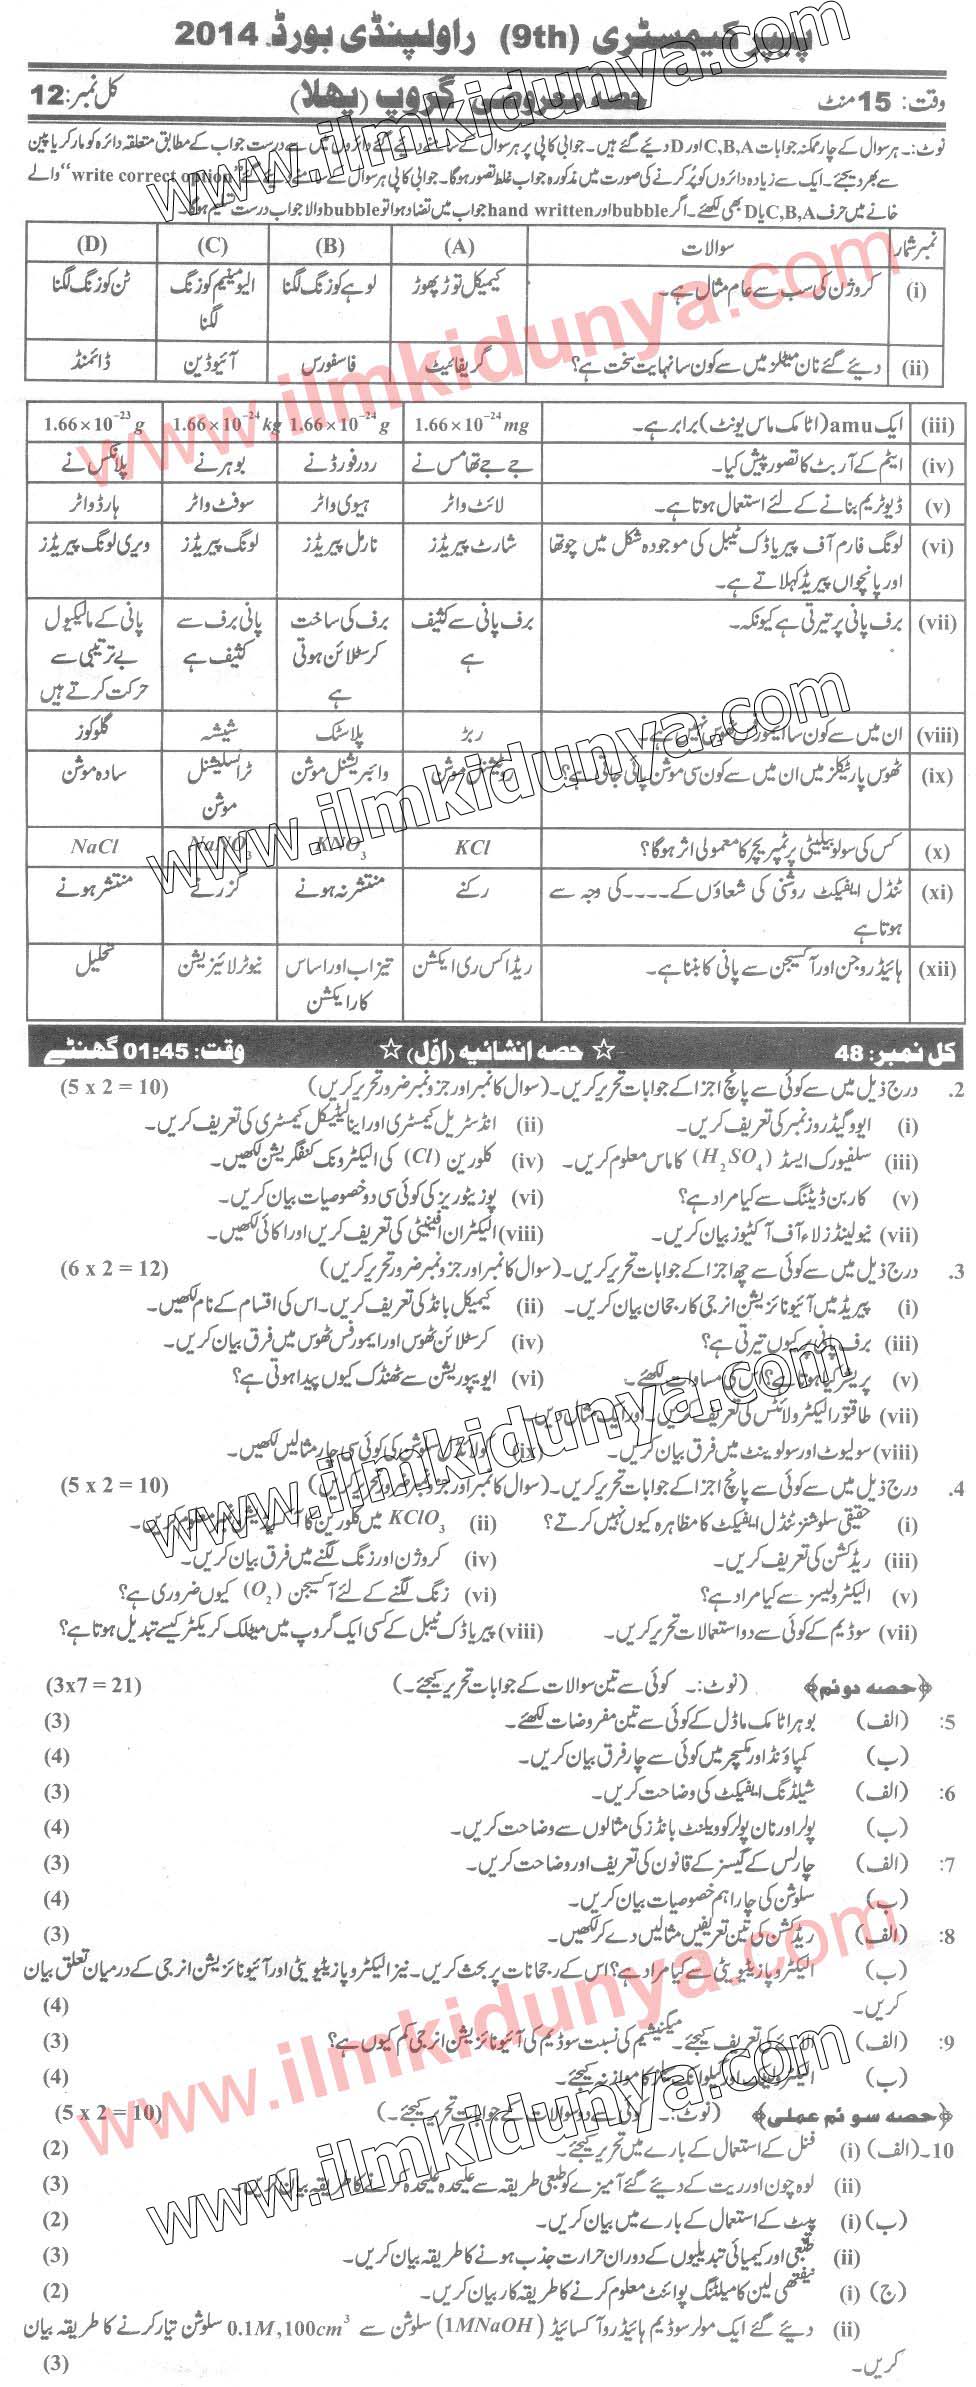 پیپر کیمسٹری (9th) راولپنڈی بورڈ 2014
وقت: 15 منٹ حصہ معروضی گروپ (پہلا) کل نمبر: 12
نوٹ:۔ ہر سوال کے چار ممکنہ جوابات C,B,A اور D دیئے گئے ہیں۔ جوابی کاپی پر ہر سوال کے سامنے دیئے گئے دائروں میں سے درست جواب کے مطابق متعلقہ دائرہ کو مارکر یا پین
سے بھر دیجئے۔ ایک سے زیادہ دائروں کو پُر کرنے کی صورت میں مذکورہ جواب غلط تصور ہوگا۔ جوابی کاپی پر ہر سوال کے سامنے دیئے گئے "write correct option" والے
خانے میں حرف C,B,A یا D بھی لکھئے۔ اگر bubble اور hand written جواب میں تضاد ہوا تو bubble والا جواب درست تسلیم ہوگا۔
نمبر شمار سوالات (A) (B) (C) (D)
(i) کروژن کی سب سے عام مثال ہے۔ کیمیکل توڑ پھوڑ لوہے کو زنگ لگنا الیومینیم کو زنگ لگنا ٹن کو زنگ لگنا
(ii) دیئے گئے نان میٹلز میں سے کون سا نہایت سخت ہے؟ گریفائیٹ فاسفورس آئیوڈین ڈائمنڈ
(iii) ایک amu (اٹامک ماس یونٹ) برابر ہے۔ 1.66×10⁻²⁴ mg 1.66×10⁻²⁴ g 1.66×10⁻²⁴ kg 1.66×10⁻²³ g
(iv) ایٹم کے آربٹ کا تصور پیش کیا۔ جے جے تھامسن نے ردرفورڈ نے بوہر نے پلانکس نے
(v) ڈیوٹریم بنانے کے لئے استعمال ہوتا ہے۔ لائٹ واٹر ہیوی واٹر سوفٹ واٹر ہارڈ واٹر
(vi) لونگ فارم آف پیریاڈک ٹیبل کی موجودہ شکل میں چوتھا اور پانچواں پیریڈ کہلاتے ہے۔ شارٹ پیریڈز نارمل پیریڈز لونگ پیریڈز ویری لونگ پیریڈز
(vii) برف پانی پر تیرتی ہے کیونکہ۔ برف پانی سے کثیف ہے برف کی ساخت کرسٹلائن ہوتی ہے پانی برف سے کثیف ہے پانی کے مالیکیول بے ترتیبی سے حرکت کرتے ہیں
(viii) ان میں سے کون سا ایمورفس ٹھوس نہیں ہے۔ ربڑ پلاسٹک شیشہ گلوکوز
(ix) ٹھوس پارٹیکلز میں ان میں سے کون سی موشن پائی جاتی ہے؟ روٹیشنل موشن وائبریشنل موشن ٹرانسلیشنل موشن سادہ موشن
(x) کس کی سولوبیلیٹی پر ٹمپریچر کا معمولی اثر ہوگا؟ KCl KNO₃ NaNO₃ NaCl
(xi) ٹنڈل ایفیکٹ روشنی کی شعاؤں کے ۔۔۔۔ کی وجہ سے ہوتا ہے رکنے منتشر نہ ہونے گزرنے منتشر ہونے
(xii) ہائیڈروجن اور آکسیجن سے پانی کا بننا ہے۔ ریڈاکس ری ایکشن تیزاب اور اساس کا ری ایکشن نیوٹرلائیزیشن تحلیل
کل نمبر: 48 ☆ حصہ انشائیہ (اوّل) ☆ وقت: 01:45 گھنٹے
2. درج ذیل میں سے کوئی سے پانچ اجزا کے جوابات تحریر کریں۔ (سوال کا نمبر اور جزو نمبر ضرور تحریر کریں) (5 x 2 = 10)
(i) ایووگیڈروز نمبر کی تعریف کریں۔ (ii) انڈسٹریل کیمسٹری اور اینالیٹیکل کیمسٹری کی تعریف کریں۔
(iii) سلفیورک ایسڈ (H₂SO₄) کا ماس معلوم کریں۔ (iv) کلورین (Cl) کی الیکٹرونک کنفگریشن لکھیں۔
(v) کاربن ڈیٹنگ سے کیا مراد ہے؟ (vi) پوزیٹوریز کی کوئی سی دو خصوصیات بیان کریں۔
(vii) نیولینڈز لاء آف آکٹیوز بیان کریں۔ (viii) الیکٹران افینیٹی کی تعریف کریں اور اکائی لکھیں۔
3. درج ذیل میں سے کوئی سے چھ اجزا کے جوابات تحریر کریں۔ (سوال کا نمبر اور جزو نمبر ضرور تحریر کریں) (6 x 2 = 12)
(i) پیریڈ میں آئیونائزیشن انرجی کا رجحان بیان کریں۔ (ii) کیمیکل بانڈ کی تعریف کریں۔ اس کی اقسام کے نام لکھیں۔
(iii) برف پانی پر کیوں تیرتی ہے؟ (iv) کرسٹلائن ٹھوس اور ایمورفس ٹھوس میں فرق بیان کریں۔
(v) پریشر کیا ہوتا ہے؟ اس کی مساوات لکھئے۔ (vi) ایویپوریشن سے ٹھنڈک کیوں پیدا ہوتی ہے؟
(vii) طاقتور الیکٹرولائٹس کی تعریف کریں۔ اور ایک مثال دیں۔
(viii) سولیوٹ اور سولوینٹ میں فرق بیان کریں۔ (ix) کولائڈل سلوشن کی کوئی سی چار مثالیں لکھیں۔
4. درج ذیل میں سے کوئی سے پانچ اجزا کے جوابات تحریر کریں۔ (سوال کا نمبر اور جزو نمبر ضرور تحریر کریں) (5 x 2 = 10)
(i) حقیقی سلوشنز ٹنڈل ایفیکٹ کا مظاہرہ کیوں نہیں کرتے؟ (ii) KClO₃ میں کلورین کا آکسیڈیشن نمبر معلوم کریں۔
(iii) ریڈکشن کی تعریف کریں۔ (iv) کروژن اور زنگ لگنے میں فرق بیان کریں۔
(v) الیکٹرولیسز سے کیا مراد ہے؟ (vi) زنگ لگنے کے لئے آکسیجن (O₂) کیوں ضروری ہے؟
(vii) سوڈیم کے کوئی سے دو استعمالات تحریر کریں۔ (viii) پیریاڈک ٹیبل کے کسی ایک گروپ میں میٹلک کریکٹر کیسے تبدیل ہوتا ہے؟
﴿حصہ دوئم﴾ (نوٹ:۔ کوئی سے تین سوالات کے جوابات تحریر کیجئے۔) (3x7 = 21)
5: (الف) بوہر اٹامک ماڈل کے کوئی سے تین مفروضات لکھئے۔ (3)
(ب) کمپاؤنڈ اور مکسچر میں کوئی سے چار فرق بیان کریں۔ (4)
6: (الف) شیلڈنگ ایفیکٹ کی وضاحت کریں۔ (3)
(ب) پولر اور نان پولر کوویلنٹ بانڈز کی مثالوں سے وضاحت کریں۔ (4)
7: (الف) چارلس کے گیسز کے قانون کی تعریف اور وضاحت کریں۔ (3)
(ب) سلوشن کی چار اہم خصوصیات بیان کریں۔ (4)
8: (الف) ریڈکشن کی تین تعریفیں مثالیں دے کر لکھیں۔ (3)
(ب) الیکٹروپازیٹیویٹی سے کیا مراد ہے؟ اس کے رجحانات پر بحث کریں۔ نیز الیکٹروپازیٹیویٹی اور آئیونائزیشن انرجی کے درمیان تعلق بیان
کریں۔ (4)
9: (الف) الائے کی تعریف کیجئے۔ میگنیشیم کی نسبت سوڈیم کی آئیونائزیشن انرجی کم کیوں ہے؟ (3)
(ب) الیکٹرولیٹک اور گیلوانک سیلز کا موازنہ کیجئے۔ (4)
﴿حصہ سوئم عملی﴾ (نوٹ:۔ کوئی سے دو سوالات کے جوابات تحریر کیجئے۔) (5 x 2 = 10)
10۔ (الف) (i) فنل کے استعمال کے بارے میں تحریر کیجئے۔ (2)
(ii) لوہ چون اور ریت کے دیئے گئے آمیزے کو طبعی طریقہ سے علیحدہ علیحدہ کرنے کا طریقہ بیان کریں۔ (3)
(ب) (i) پپٹ کے استعمال کے بارے میں بیان کریں۔ (2)
(ii) طبعی اور کیمیائی تبدیلیوں کے دوران حرارت جذب ہونے کا طریقہ بیان کریں۔ (3)
(ج) (i) نیفتھی لین کا میلٹنگ پوائنٹ معلوم کرنے کا طریقہ کار بیان کریں۔ (2)
(ii) دیئے گئے ایک مولر سوڈیم ہائیڈروآکسائیڈ (1MNaOH) سلوشن سے 0.1M,100cm³ سلوشن تیار کرنے کا طریقہ بیان
کریں۔ (3)
www.ilmkidunya.com
www.ilmkidunya.com
www.ilmkidunya.com
www.ilmkidunya.com
www.ilmkidunya.com
www.ilmkidunya.com